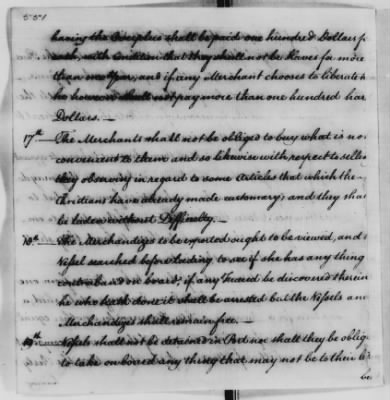 551
having the Overplus shall be paid one hundred Dollars f
each, with Condition that they shall not be Slaves for more
than one Year, and if any Merchant chooses to liberate t
he however shall not pay more than one hundred har
Dollars. —
17th — The Merchants shall not be obliged to buy what is no
convenient to them and so likewise with respect to selle
they observing in regard to some Articles that which the
Christians have already made customary; and they sha
be laden without Difficulty. —
18th — The Merchandizes to be exported ought to be viewed, and
Vessel searched before lading to see if she has any thing
contraband on board; if any Fraud be discovered therein
he who hath done it shall be arrested but the Vessels an
Merchandizes shall remain free. —
19th — Vessels shall not be detained in Port nor shall they be oblig
to take on board any thing that may not be to their
be